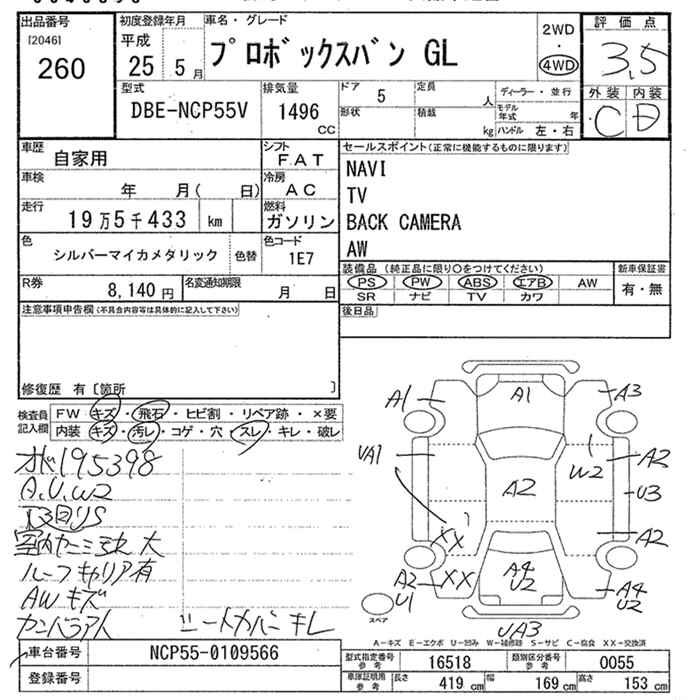 出品番号 初度登録年月 車名・グレード 評価点
[2046] 平成 プロボックスバン GL 2WD
260 25 5月 4WD 3.5
型式 排気量 ドア 5 定員 人 ディーラー・並行 外装 内装
DBE-NCP55V 1496 cc 形状 積載 kg モデル年式 年 C D
ハンドル 左・右
車歴 自家用 シフト F.A.T セールスポイント(正常に機能するものに限ります)
車検 年 月( 日) 冷房 AC NAVI
TV
走行 19万5千433 km 燃料 ガソリン BACK CAMERA
色 シルバーマイカメタリック 色替 色コード 1E7 AW
装備品(純正品に限り○をつけてください) 新車保証書
R券 8,140円 名変通知期限 月 日 PS PW ABS エアB AW 有・無
SR ナビ TV カワ
注意事項申告欄(不具合内容等は具体的に記入して下さい) 後日品
修復歴 有〔箇所 〕
検査員記入欄 FW キズ・飛石・ヒビ割・リペア跡・×要
内装 キズ・汚レ・コゲ・穴・スレ・キレ・破レ
195398
A.U.W2
ルーフキャリア有
AWキズ
シートカバーキレ
A1 A1 A3
UA1 W2 A2
A2 U3
XX A2
A2 U1 XX A4 U2 A4 U2
スペア UA3
A―キズ E―エクボ U―凹み W―補修跡 S―サビ C―腐食 XX―交換済
車台番号 NCP55-0109566 型式指定番号 参考 16518 類別区分番号 参考 0055
登録番号 車庫証明用 参考 長さ 419 cm 幅 169 cm 高さ 153 cm